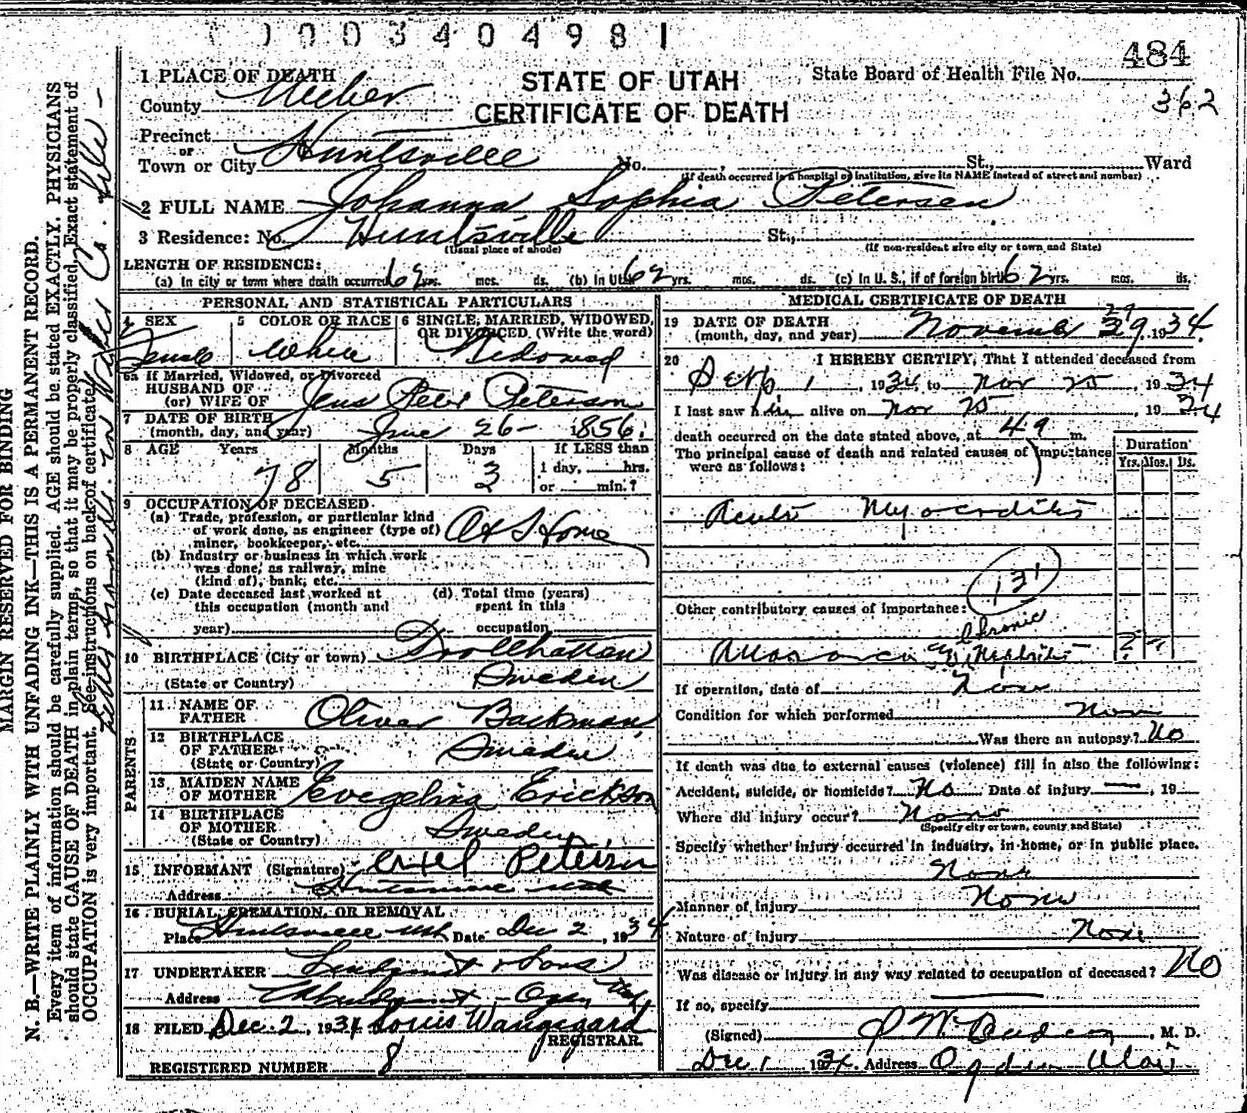 1003404981
484
STATE OF UTAH
CERTIFICATE OF DEATH
State Board of Health File No.
362
1 PLACE OF DEATH
County Weber
Precinct
or
Town or City Huntsville No. , St., Ward
(If death occurred in a hospital or institution, give its NAME instead of street and number)
2 FULL NAME Johanna Sophia Petersen
3 Residence: No. Huntsville St.,
(Usual place of abode) (If non-resident give city or town and State)
LENGTH OF RESIDENCE:
(a) In city or town where death occurred 62 yrs. mos. ds. (b) In Utah 62 yrs. mos. ds. (c) In U. S., if of foreign birth 62 yrs. mos. ds.
PERSONAL AND STATISTICAL PARTICULARS
4 SEX
Female
5 COLOR OR RACE
White
6 SINGLE, MARRIED, WIDOWED,
OR DIVORCED (Write the word)
Widowed
6a If Married, Widowed, or Divorced
HUSBAND OF
(or) WIFE OF Jens Peter Peterson
7 DATE OF BIRTH
(month, day, and year) June 26- 1856.
8 AGE Years Months Days If LESS than
78 5 3 1 day, hrs.
or min.?
9 OCCUPATION OF DECEASED.
(a) Trade, profession, or particular kind
of work done, as engineer (type of)
miner, bookkeeper, etc. At Home
(b) Industry or business in which work
was done, as railway, mine
(kind of), bank, etc.
(c) Date deceased last worked at
this occupation (month and
year)
(d) Total time (years)
spent in this
occupation
10 BIRTHPLACE (City or town) Trollhattan
(State or Country) Sweden
PARENTS
11 NAME OF
FATHER Oliver Backman
12 BIRTHPLACE
OF FATHER
(State or Country) Sweden
13 MAIDEN NAME
OF MOTHER Evegelina Erickson
14 BIRTHPLACE
OF MOTHER
(State or Country) Sweden
15 INFORMANT (Signature) Axel Petersen
Address Huntsville Utah
16 BURIAL, CREMATION, OR REMOVAL
Place Huntsville Utah Date Dec 2, 1934
17 UNDERTAKER Lindquist & Sons
Address Ogden Utah
18 FILED Dec. 2, 1934 Louis Wangsgard
REGISTRAR.
REGISTERED NUMBER 8
MEDICAL CERTIFICATE OF DEATH
19 DATE OF DEATH
(month, day, and year) November 29, 1934.
20 I HEREBY CERTIFY, That I attended deceased from
Sept 1, 1934 to Nov 25, 1934
I last saw her alive on Nov 25, 1934
death occurred on the date stated above, at 4 a m.
The principal cause of death and related causes of importance
were as follows:
Duration
Yrs. Mos. Ds.
Acute Myocarditis
131
Other contributory causes of importance:
Chronic
Anasarca Nephritis
If operation, date of None
Condition for which performed None
Was there an autopsy? No
If death was due to external causes (violence) fill in also the following:
Accident, suicide, or homicide? No Date of injury —, 19
Where did injury occur? None
(Specify city or town, county and State)
Specify whether injury occurred in industry, in home, or in public place.
None
Manner of injury None
Nature of injury None
Was disease or injury in any way related to occupation of deceased? No
If so, specify
(Signed) , M. D.
Dec 1 1934 Address Ogden Utah
MARGIN RESERVED FOR BINDING
N. B.—WRITE PLAINLY WITH UNFADING INK—THIS IS A PERMANENT RECORD.
Every item of information should be carefully supplied. AGE should be stated EXACTLY. PHYSICIANS
should state CAUSE OF DEATH in plain terms, so that it may be properly classified. Exact statement of
OCCUPATION is very important. See instructions on back of certificate.
in Weber Co. file -